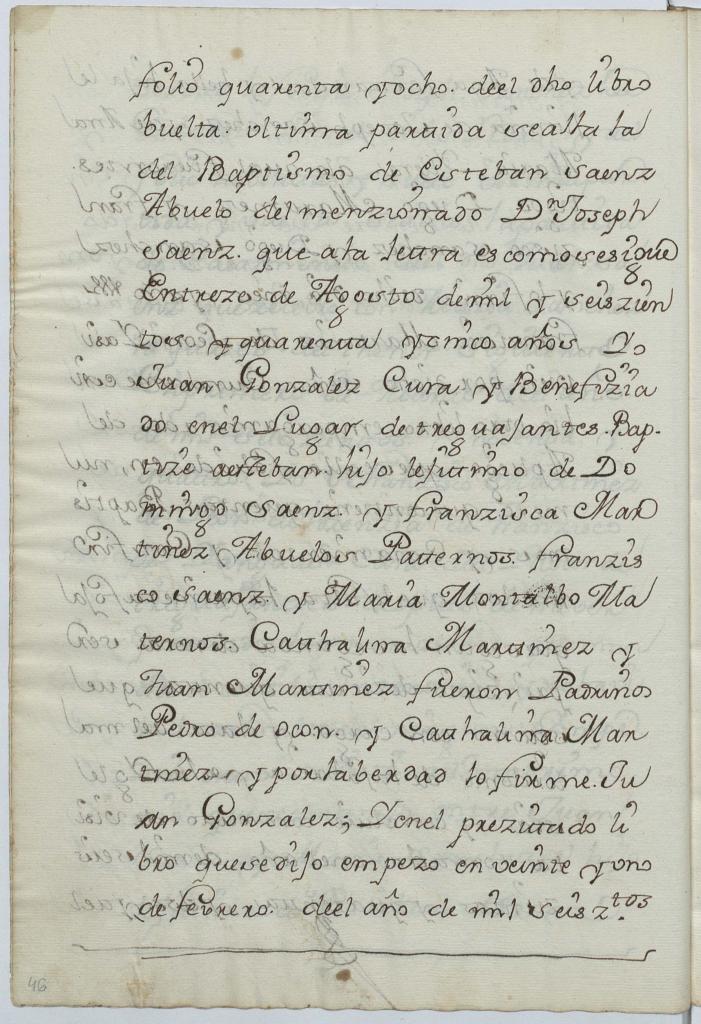 folio quarenta yocho. deel dho libro
buelta. ultima partida sealla la
del Baptismo de Esteban Saenz
Abuelo delmenzionado Dn Joseph
Saenz. que ala letra escomosesigue
Entreze de Agosto demil y seiszien
tos y quarenta ycinco años Yo
Juan Gonzalez Cura y Benefizia
do enel Lugar de treguajantes. Bap-
tize aesteban. hijo lejitimo de Do
mingo Saenz. y franzisca Mar
tinez Abuelos Patternos. franzis
co Saenz. y Maria Montalbo Ma
ternos. Catthalina Martinez y
Juan Martinez fueron Padrinos
Pedro de ocon. y Catthalina Mar
tinez y porlaberdad lo firme. Ju
an Gonzalez; Yenel prezitado li
bro quesedijo empezo en veinte yuno
de febrero. deel año de mil seis ztos.
46